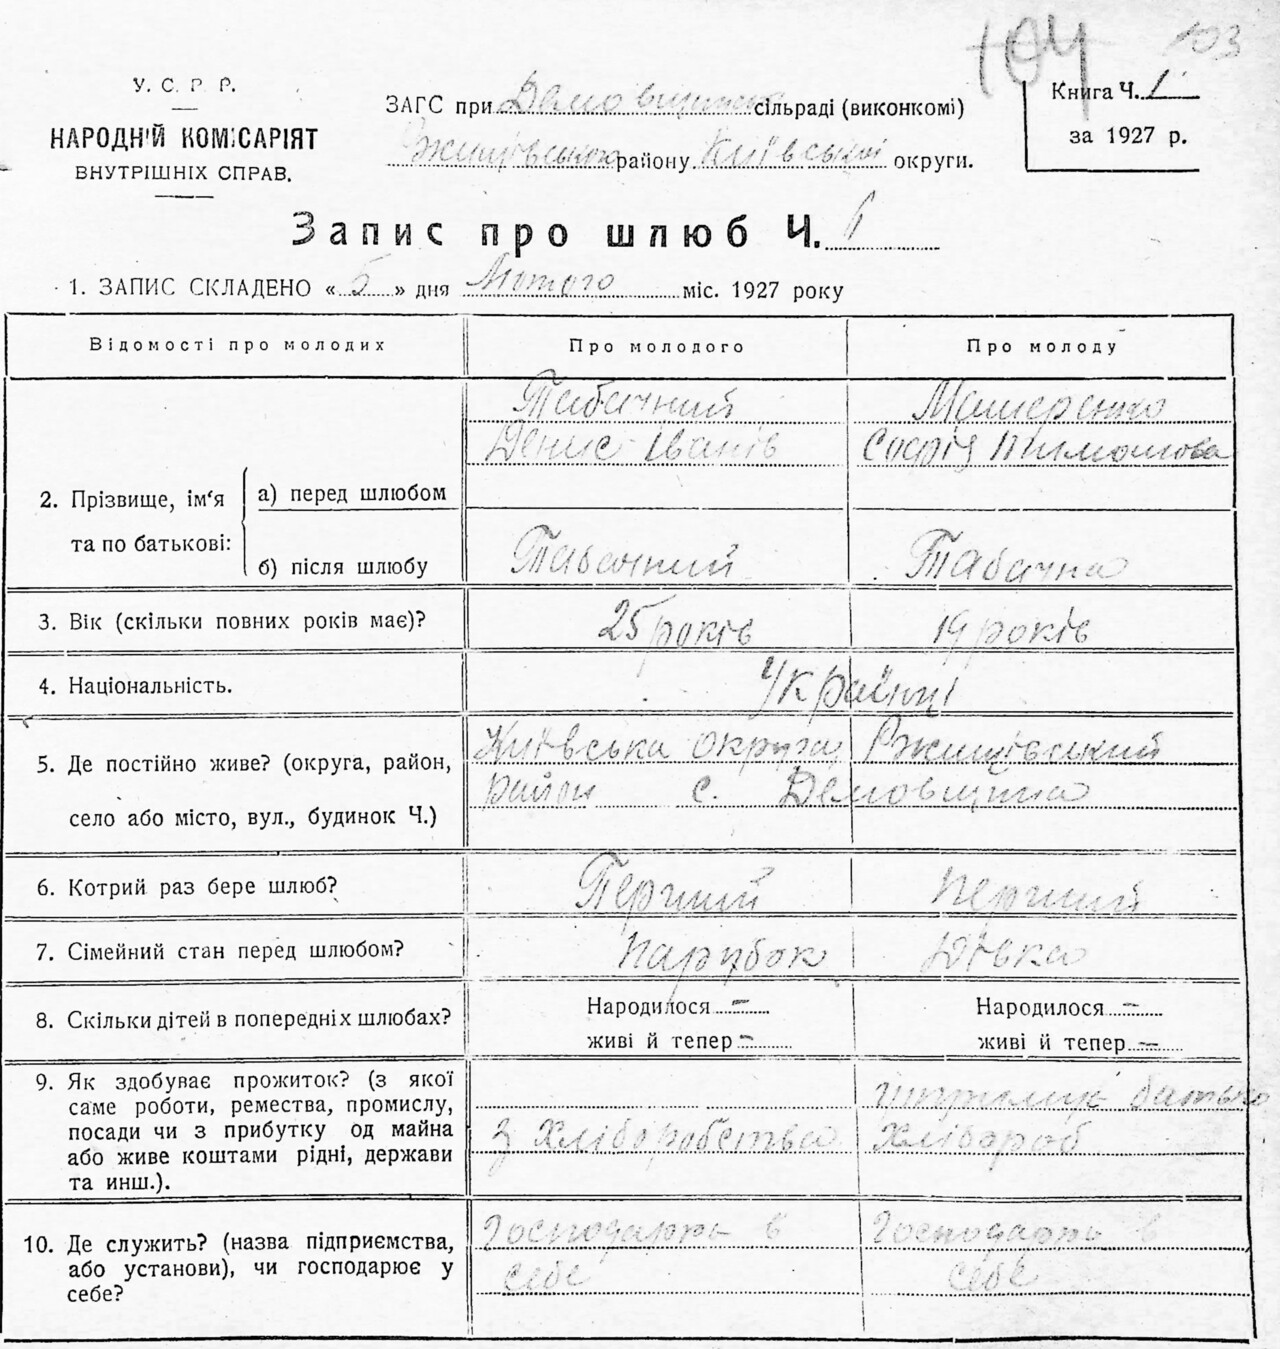 104 103
У. С. Р. Р.
НАРОДНІЙ КОМІСАРІЯТ
ВНУТРІШНІХ СПРАВ.
ЗАГС при Демовщинські сільраді (виконкомі)
Ржищівського району Київської округи.
Книга Ч. 1
за 1927 р.
Запис про шлюб Ч. 6
1. ЗАПИС СКЛАДЕНО « 5 » дня Лютого міс. 1927 року
Відомості про молодих
Про молодого
Про молоду
2. Прізвище, ім'я та по батькові:
а) перед шлюбом
Табачний
Денис Іванів
Софія Тимошова
б) після шлюбу
Табачний
Табачна
3. Вік (скільки повних років має)?
25 років
19 років
4. Національність.
Українці
5. Де постійно живе? (округа, район,
село або місто, вул., будинок Ч.)
Київська округа, Ржищівський
район с. Демовщина
6. Котрий раз бере шлюб?
Перший
перший
7. Сімейний стан перед шлюбом?
парубок
дівка
8. Скільки дітей в попередніх шлюбах?
Народилося –
живі й тепер –
Народилося –
живі й тепер –
9. Як здобуває прожиток? (з якої
саме роботи, ремества, промислу,
посади чи з прибутку од майна
або живе коштами рідні, держави
та инш.).
з хліборобства
батько
хлібороб
10. Де служить? (назва підприємства,
або установи), чи господарює у
себе?
Господарь в
себе
Господарь в
себе